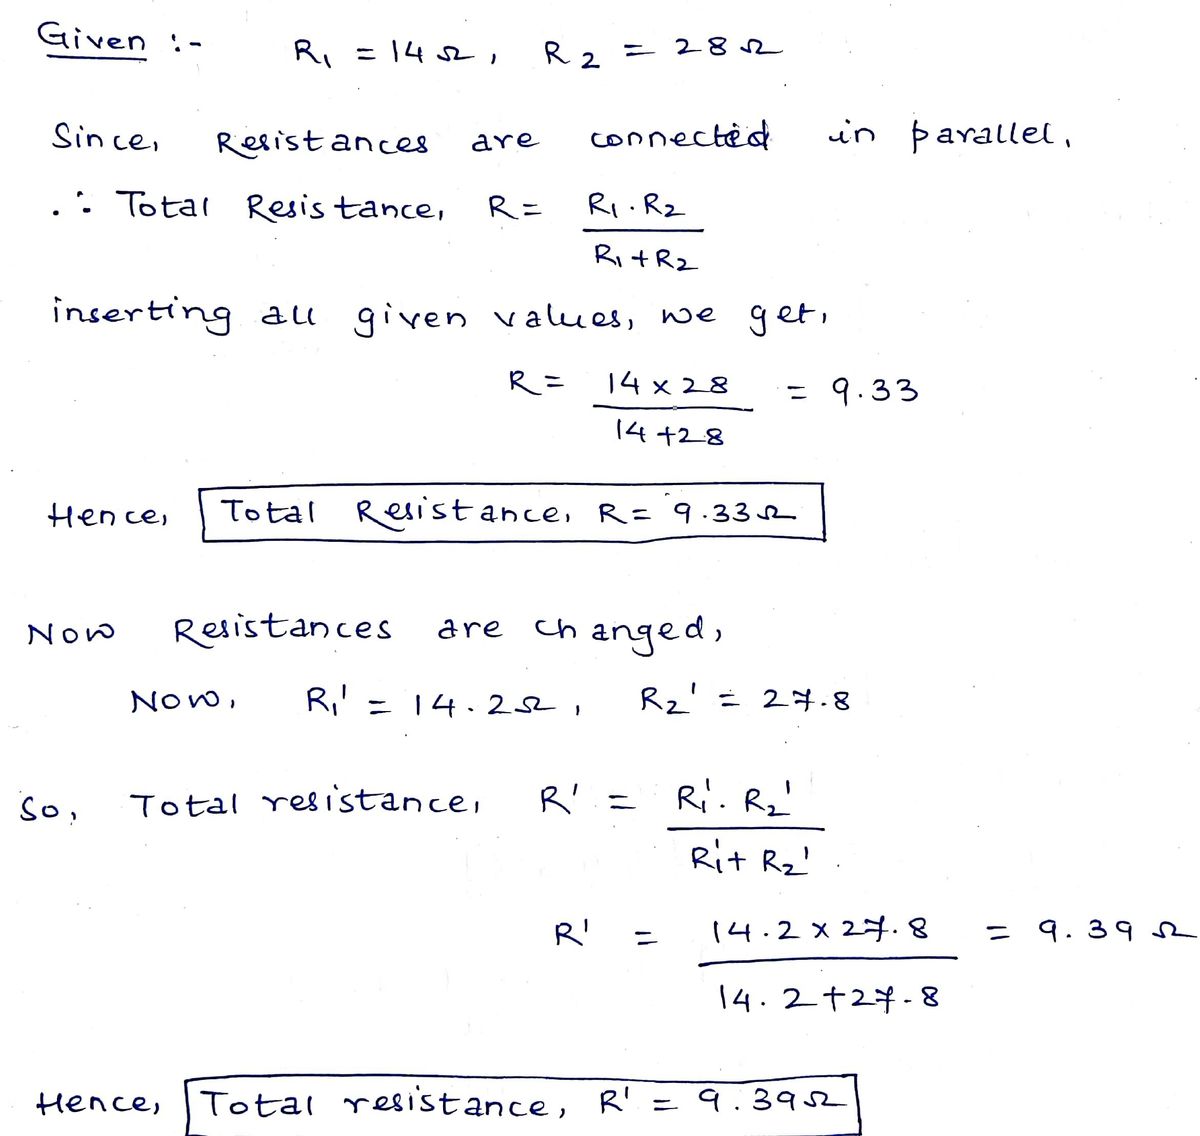 Given :- R₁ = 14Ω, R₂ = 28Ω
Since, Resistances are connected in parallel,
∴ Total Resistance, R = R₁·R₂ / R₁+R₂
inserting all given values, we get,
R = 14 × 28 / 14 + 28 = 9.33
Hence, Total Resistance, R = 9.33Ω
Now Resistances are changed,
Now, R₁' = 14.2Ω, R₂' = 27.8
So, Total resistance, R' = R₁'·R₂' / R₁'+R₂'
R' = 14.2 × 27.8 / 14.2+27.8 = 9.39Ω
Hence, Total resistance, R' = 9.39Ω